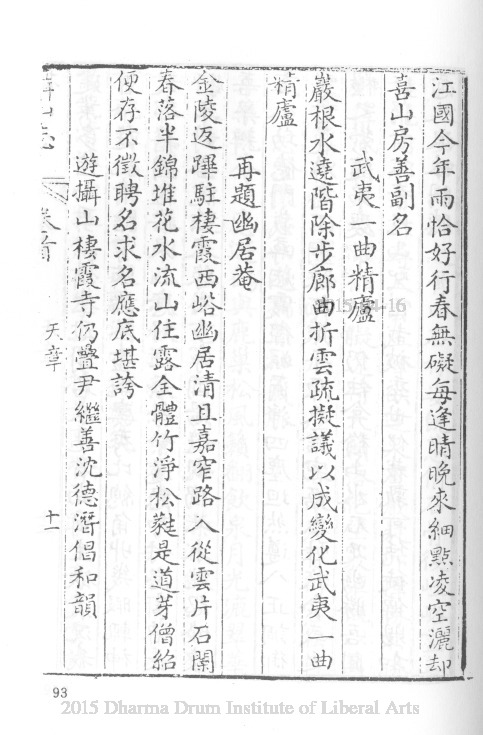 江國今年雨恰好行春無礙每逢晴晚來細點凌空灑却
喜山房善副名
武夷一曲精廬
巖根水遶階除步廊曲折雲疏擬議以成變化武夷一曲
精廬
再題幽居菴
金陵返蹕駐棲霞西峪幽居清且嘉窄路入從雲片石閑
春落半錦堆花水流山住露全體竹淨松蕤是道芽僧紹
便存不徵聘名求名應底堪誇
遊攝山棲霞寺仍疊尹繼善沈德潛倡和韻
山志 卷首 天章 十一
93
2015 Dharma Drum Institute of Liberal Arts